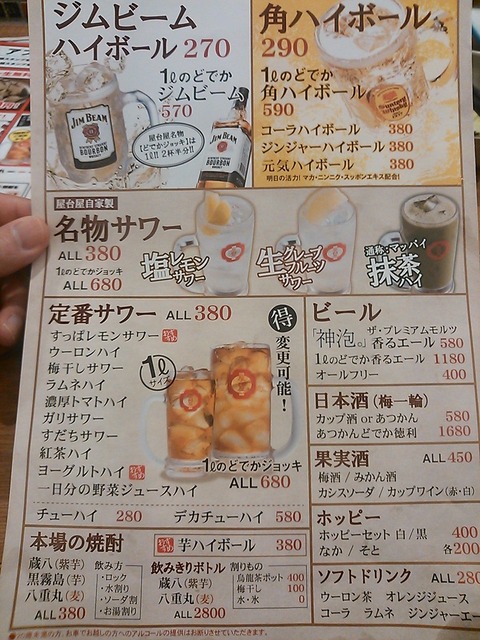 ジムビーム
ハイボール 270
1ℓのどでか
ジムビーム
570
JIM BEAM
BOURBON
屋台屋名物
【どでかジョッキ】は
1ℓ!! 2杯半分!!
JIM BEAM
BOURBON
角ハイボール
290
1ℓのどでか
角ハイボール
590
コーラハイボール 380
ジンジャーハイボール 380
元気ハイボール 380
明日の活力! マカ・ニンニク・スッポンエキス配合!
屋台屋自家製
名物サワー
ALL 380
1ℓのどでかジョッキ
ALL 680
塩レモンサワー
生グレープフルーツサワー
通称:マッパイ
抹茶ハイ
定番サワー ALL 380
すっぱレモンサワー
ウーロンハイ
梅干しサワー
ラムネハイ
濃厚トマトハイ
ガリサワー
すだちサワー
紅茶ハイ
ヨーグルトハイ
一日分の野菜ジュースハイ
1ℓサイズ
得 変更可能!
1ℓのどでかジョッキ
ALL 680
チューハイ 280 デカチューハイ 580
ビール
ザ・プレミアムモルツ
「神泡。」香るエール 580
1ℓのどでか香るエール 1180
オールフリー 400
日本酒(梅一輪)
カップ酒 or あつかん 580
あつかんどでか徳利 1680
果実酒 ALL 450
梅酒 / みかん酒
カシスソーダ / カップワイン(赤・白)
ホッピー
ホッピーセット 白 / 黒 400
なか / そと 各200
ソフトドリンク ALL 280
ウーロン茶 オレンジジュース
コーラ ラムネ ジンジャーエー
本場の焼酎
蔵八(紫芋)
黒霧島(芋)
八重丸(麦)
ALL 380
飲み方
・ロック
・水割り
・ソーダ割
・お湯割り
芋ハイボール 380
飲みきりボトル
蔵八(紫芋)
八重丸(麦)
ALL 2800
割りもの
烏龍茶ポット 400
梅干し 100
水・氷 0
●20歳未満の方、お車でお越しの方へのアルコールの提供はお断りさせていただきます。